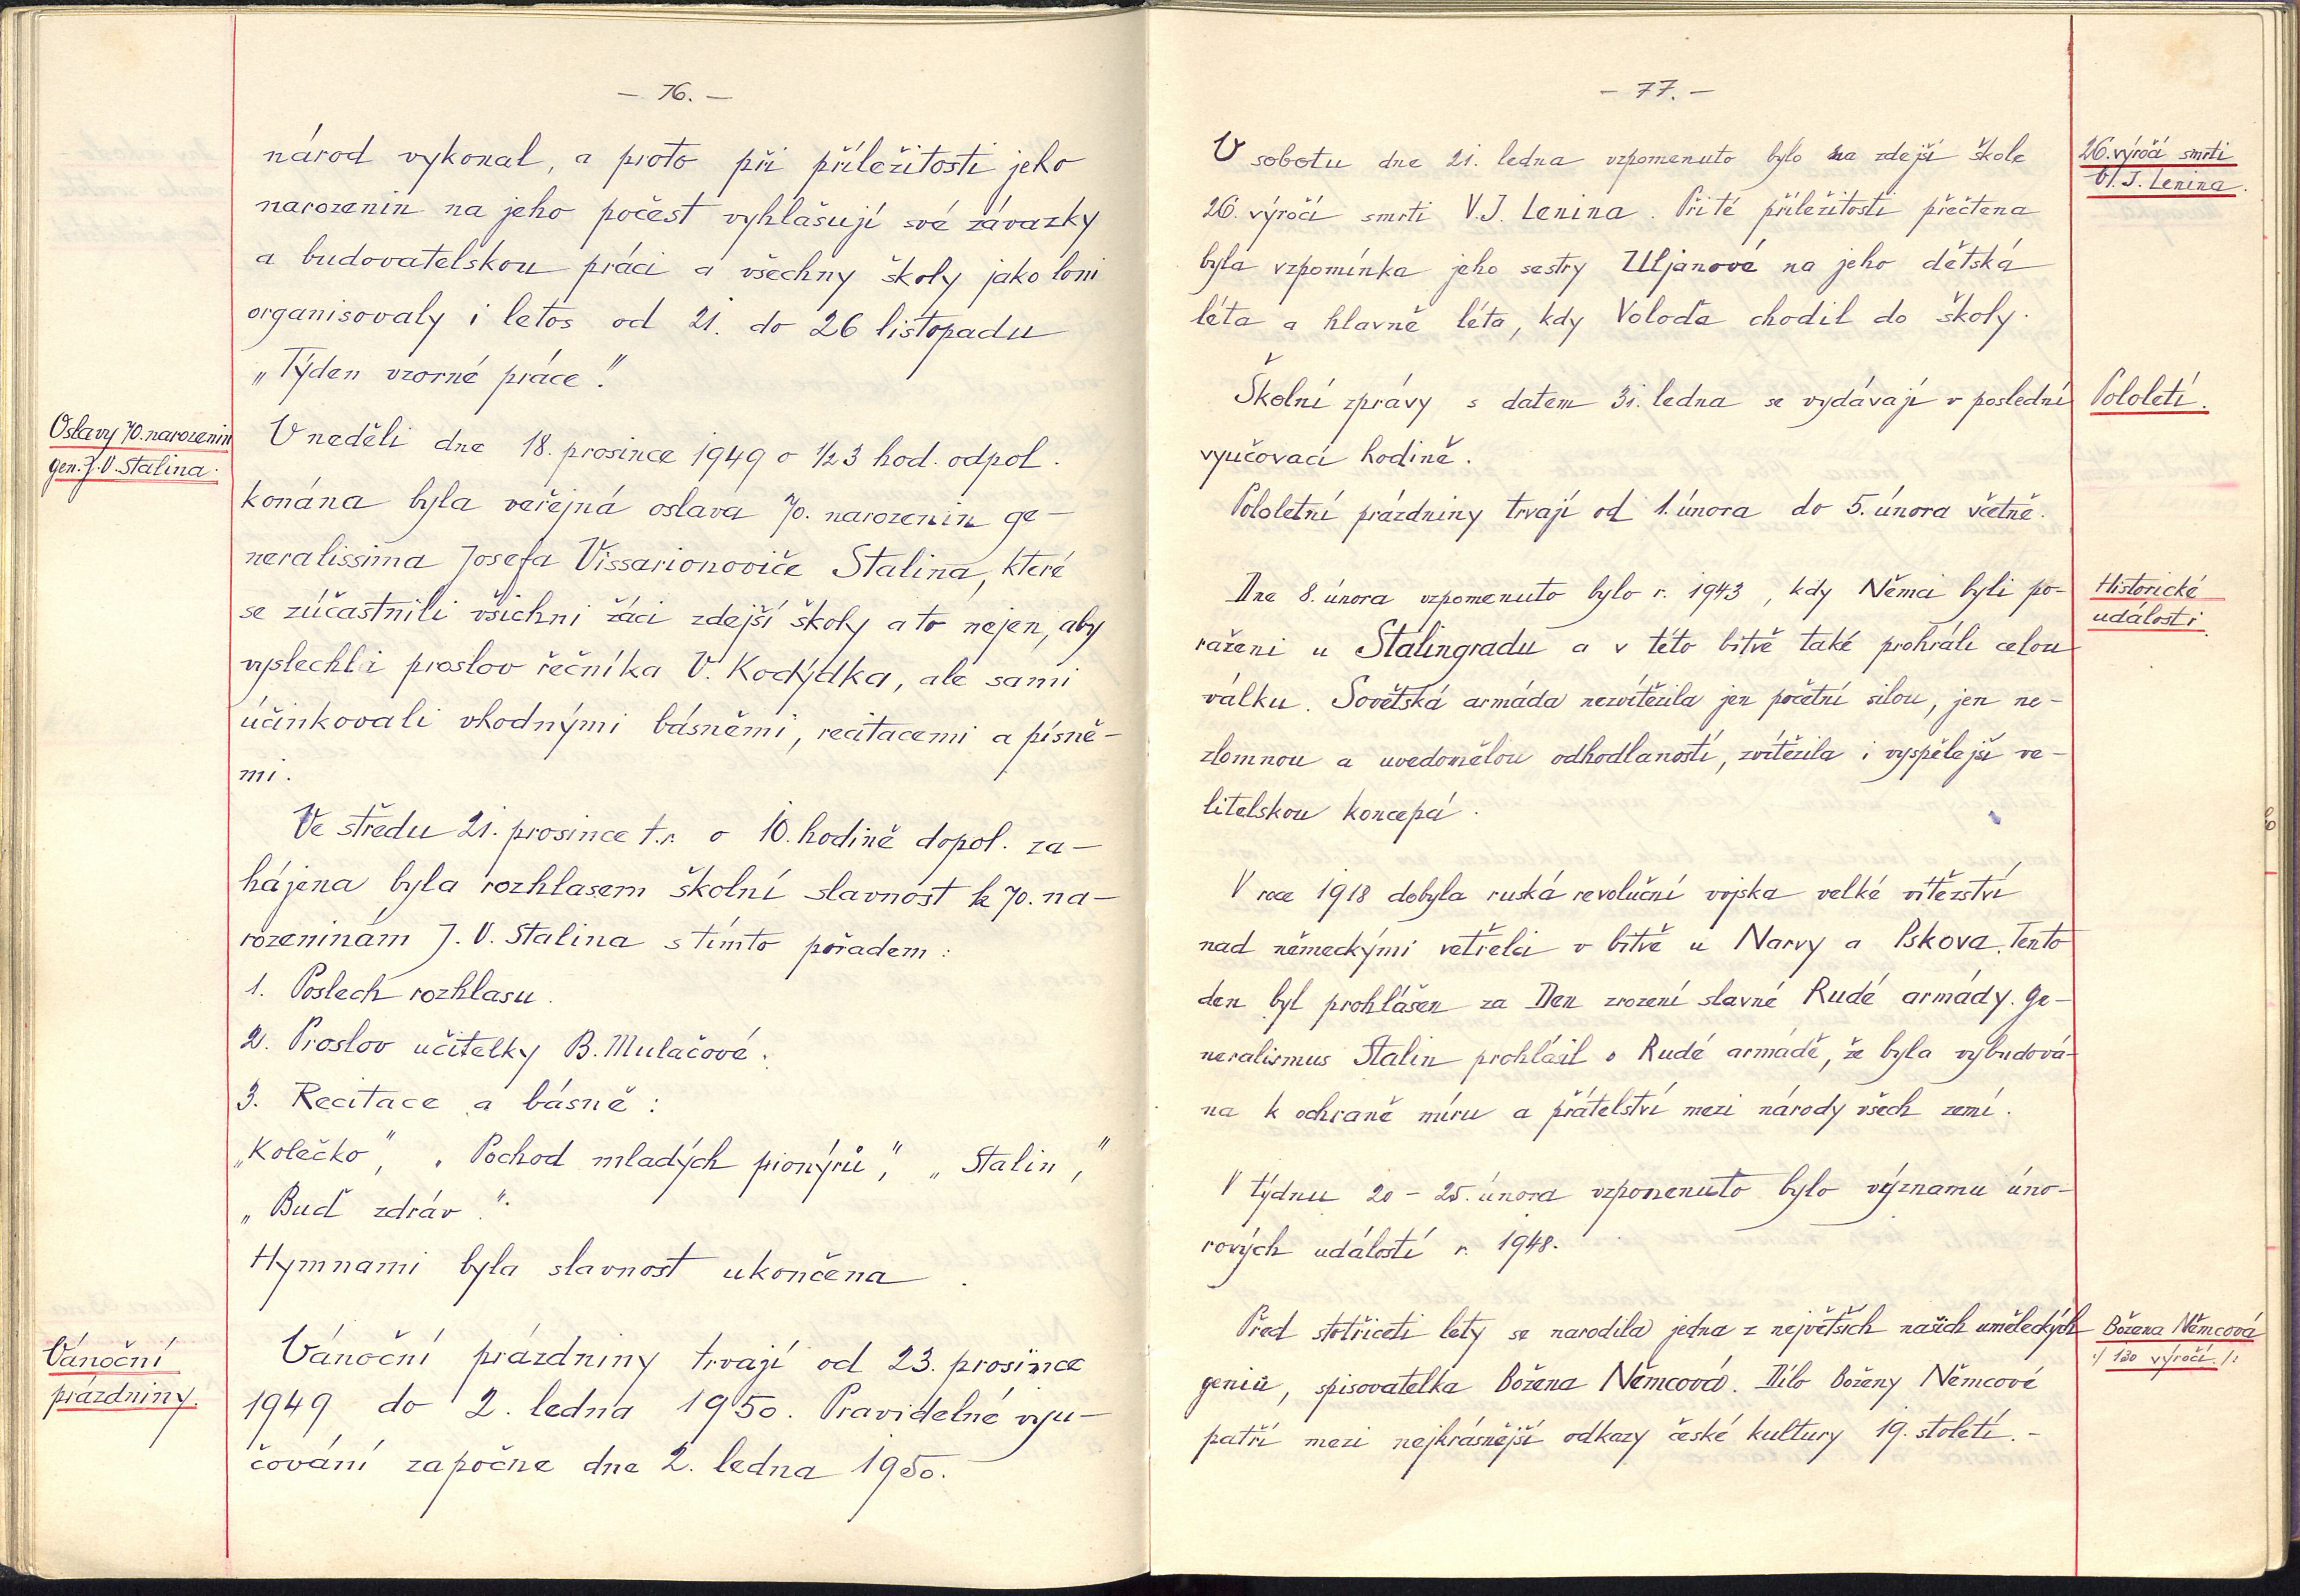 — 76. —
národ vykonal, a proto při příležitosti jeho
narozenin na jeho počest vyhlašují své závazky
a budovatelskou práci a všechny školy jako loni
organisovaly i letos od 21. do 26 listopadu
„Týden vzorné práce."
Oslavy 70. narozenin
gen. J. V. Stalina.
V neděli dne 18. prosince 1949 o 1/2 3 hod. odpol.
konána byla veřejná oslava 70. narozenin ge-
neralissima Josefa Vissarionoviče Stalina, které
se zúčastnili všichni žáci zdejší školy a to nejen, aby
vyslechli proslov řečníka V. Kodýdka, ale sami
účinkovali vhodnými básněmi, recitacemi a písně-
mi.
Ve středu 21. prosince t.r. o 10. hodině dopol. za-
hájena byla rozhlasem školní slavnost k 70. na-
rozeninám J. V. Stalina s tímto pořadem:
1. Poslech rozhlasu.
2. Proslov učitelky B. Mulačové.
3. Recitace a básně:
„Kolečko", „Pochod mladých pionýrů", „Stalin",
„Buď zdráv".
Hymnami byla slavnost ukončena.
Vánoční
prázdniny.
Vánoční prázdniny trvají od 23. prosince
1949 do 2. ledna 1950. Pravidelné vyu-
čování započne dne 2. ledna 1950.
— 77. —
V sobotu dne 21. ledna vzpomenuto bylo na zdejší škole
26. výročí smrti V. J. Lenina. Při té příležitosti přečtena
byla vzpomínka jeho sestry Uljanové na jeho dětská
léta a hlavně léta, kdy Voloďa chodil do školy.
26. výročí smrti
Vl. J. Lenina.
Školní zprávy s datem 31. ledna se vydávají v poslední
vyučovací hodině.
Pololetí.
Pololetní prázdniny trvají od 1. února do 5. února včetně.
Dne 8. února vzpomenuto bylo r. 1943, kdy Němci byli po-
raženi u Stalingradu a v této bitvě také prohráli celou
válku. Sovětská armáda nezvítězila jen početní silou, jen ne-
zlomnou a uvedomělou odhodlaností, zvítězila i vyspělejší ve-
litelskou koncepcí.
Historické
události.
V roce 1918 dobyla ruská revoluční vojska velké vítězství
nad německými vetřelci v bitvě u Narvy a Pskova. Tento
den byl prohlášen za Den zrození slavné Rudé armády. Ge-
neralismus Stalin prohlásil o Rudé armádě, že byla vybudová-
na k ochraně míru a přátelství mezi národy všech zemí.
V týdnu 20 - 25. února vzpomenuto bylo významu úno-
rových událostí r. 1948.
Před stotřiceti lety se narodila jedna z největších našich uměleckých
geniů, spisovatelka Božena Němcová. Dílo Boženy Němcové
patří mezi nejkrásnější odkazy české kultury 19. století. -
Božena Němcová
:/ 130 výročí. /: